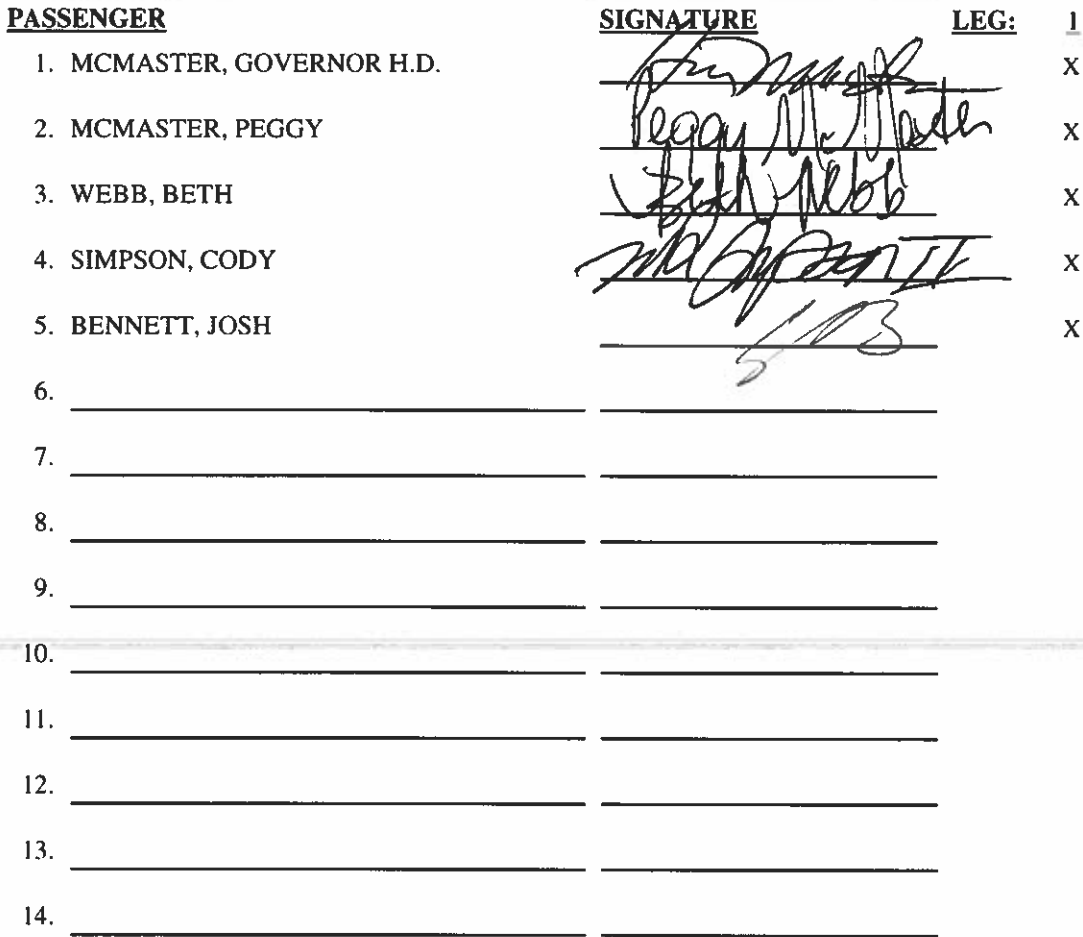 PASSENGER SIGNATURE LEG: 1
1. MCMASTER, GOVERNOR H.D. X
2. MCMASTER, PEGGY Peggy McMaster X
3. WEBB, BETH Beth Webb X
4. SIMPSON, CODY Simpson II X
5. BENNETT, JOSH X
6.
7.
8.
9.
10.
11.
12.
13.
14.